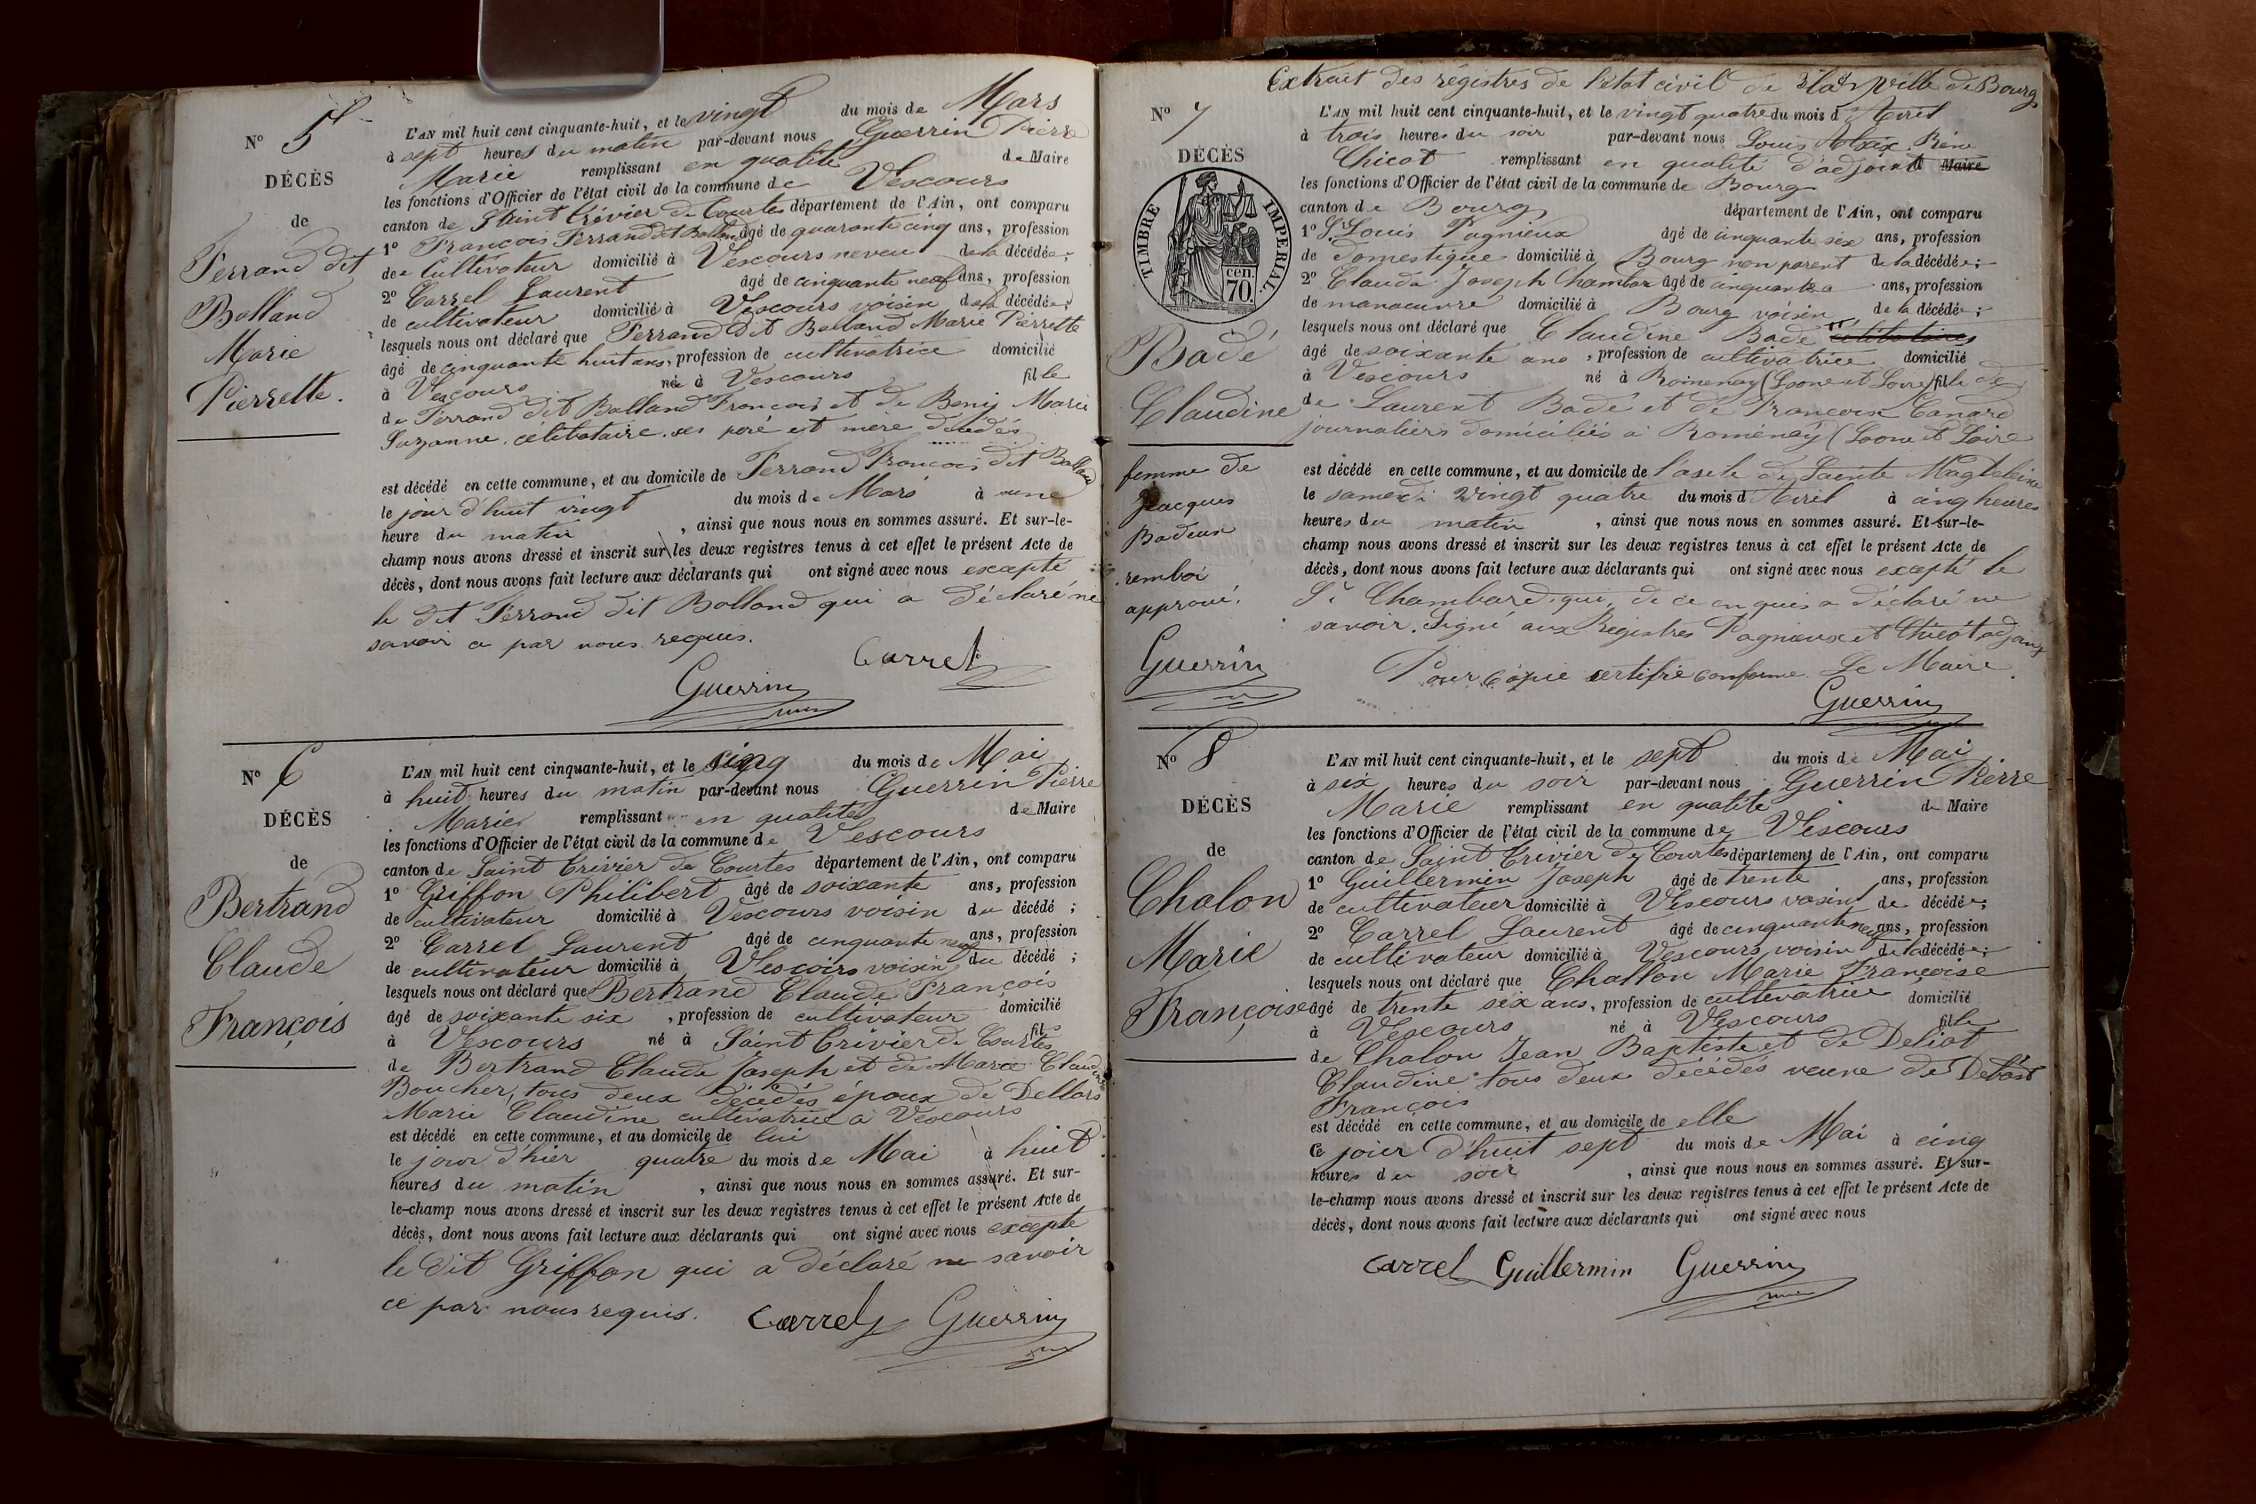 Nº 5
DÉCÈS
de
Ferrand dit
Balland
Marie
Pierrette.
L'AN mil huit cent cinquante-huit, et le vingt du mois de Mars
à sept heures du matin par-devant nous Guerrin Pierre
Marie remplissant en qualité de Maire
les fonctions d'Officier de l'état civil de la commune de Vescours
canton de Saint Trévier de Courtes département de l'Ain, ont comparu
1º François Ferrand dit Balland âgé de quarante cinq ans, profession
de Cultivateur domicilié à Vescours neveu de la décédée;
2º Carrel Laurent âgé de cinquante neuf ans, profession
de cultivateur domicilié à Vescours voisin de la décédée;
lesquels nous ont déclaré que Ferrand dit Balland Marie Pierrette
âgé de cinquante huit ans, profession de cultivatrice domicilié
à Vescours né à Vescours fille
de Ferrand dit Balland François et de Beny Marie
Suzanne. célibataire. ses père et mère décédés
est décédé en cette commune, et au domicile de Ferrand François dit Balland
le jour d'huit vingt du mois de Mars à une
heure du matin, ainsi que nous nous en sommes assuré. Et sur-le-
champ nous avons dressé et inscrit sur les deux registres tenus à cet effet le présent Acte de
décès, dont nous avons fait lecture aux déclarants qui ont signé avec nous excepté
le dit Ferrand dit Balland qui a déclaré ne
savoir ce par nous requis.
Carrel
Guerrin
Nº 6
DÉCÈS
de
Bertrand
Claude
François
L'AN mil huit cent cinquante-huit, et le cinq du mois de Mai
à huit heures du matin par-devant nous Guerrin Pierre
Marie remplissant en qualité de Maire
les fonctions d'Officier de l'état civil de la commune de Vescours
canton de Saint Trivier de Courtes département de l'Ain, ont comparu
1º Griffon Philibert âgé de soixante ans, profession
de cultivateur domicilié à Vescours voisin du décédé;
2º Carrel Laurent âgé de cinquante neuf ans, profession
de cultivateur domicilié à Vescoirs voisin du décédé;
lesquels nous ont déclaré que Bertrand Claude François
âgé de soixante six, profession de cultivateur domicilié
à Vescours né à Saint Trivier de Courtes fils
de Bertrand Claude Joseph et de Marie Claudine
Boucher, tous deux décédés époux de Dellars
Marie Claudine cultivatrice à Vescours
est décédé en cette commune, et au domicile de lui
le jour d'hier quatre du mois de Mai à huit
heures du matin, ainsi que nous nous en sommes assuré. Et sur-
le-champ nous avons dressé et inscrit sur les deux registres tenus à cet effet le présent Acte de
décès, dont nous avons fait lecture aux déclarants qui ont signé avec nous excepté
le dit Griffon qui a déclaré ne savoir
ce par nous requis.
Carrel Guerrin
Extrait des régistres de l'état civil de la ville de Bourg
Nº 7
DÉCÈS
TIMBRE IMPERIAL.
cen.
70.
Badé
Claudine
femme de
Jacques
Badeux
renvoi
approuvé.
Guerrin
L'AN mil huit cent cinquante-huit, et le vingt quatre du mois d'Avril
à trois heures du soir par-devant nous Louis Aloix Réné
Chicot remplissant en qualité d'adjoint à Maire
les fonctions d'Officier de l'état civil de la commune de Bourg
canton de Bourg département de l'Ain, ont comparu
1º S. Louis Pagnieux âgé de cinquante six ans, profession
de domestique domicilié à Bourg non parent de la décédée;
2º Claude Joseph Chambard âgé de cinquante ans, profession
de manoeuvre domicilié à Bourg voisin de la décédée;
lesquels nous ont déclaré que Claudine Badé célibataire
âgé de soixante ans, profession de cultivatrice domicilié
à Vescours né à Romenay (Saone et Loire) fille de
de Laurent Badé et de Françoise Canard
journaliers domiciliés à Romenay (Saone et Loire
est décédé en cette commune, et au domicile de l'asile de Sainte Magdeleine
le samedi vingt quatre du mois d'Avril à cinq heures
heures du matin, ainsi que nous nous en sommes assuré. Et sur-le-
champ nous avons dressé et inscrit sur les deux registres tenus à cet effet le présent Acte de
décès, dont nous avons fait lecture aux déclarants qui ont signé avec nous excepté le
Sr Chambard qui, de ce enquis a déclaré ne
savoir. Signé aux Registres Pagnieux et Chicot adjoint
Pour copie certifié conforme Le Maire
Guerrin
Nº 8
DÉCÈS
de
Chalon
Marie
Françoise
L'AN mil huit cent cinquante-huit, et le sept du mois de Mai
à six heures du soir par-devant nous Guerrin Pierre
Marie remplissant en qualité de Maire
les fonctions d'Officier de l'état civil de la commune de Vescours
canton de Saint Trivier de Courtes département de l'Ain, ont comparu
1º Guillermin Joseph âgé de trente ans, profession
de cultivateur domicilié à Vescours voisin de décédée;
2º Carrel Laurent âgé de cinquante neuf ans, profession
de cultivateur domicilié à Vescours voisin de la décédée;
lesquels nous ont déclaré que Challon Marie Françoise
âgé de trente six ans, profession de cultivatrice domicilié
à Vescours né à Vescours fille
de Chalon Jean Baptiste et de Deliat
Claudine tous deux décédés veuve de
François
est décédé en cette commune, et au domicile de elle
Ce jour d'huit sept du mois de Mai à cinq
heures du soir, ainsi que nous nous en sommes assuré. Et sur-
le-champ nous avons dressé et inscrit sur les deux registres tenus à cet effet le présent Acte de
décès, dont nous avons fait lecture aux déclarants qui ont signé avec nous
Carrel Guillermin Guerrin